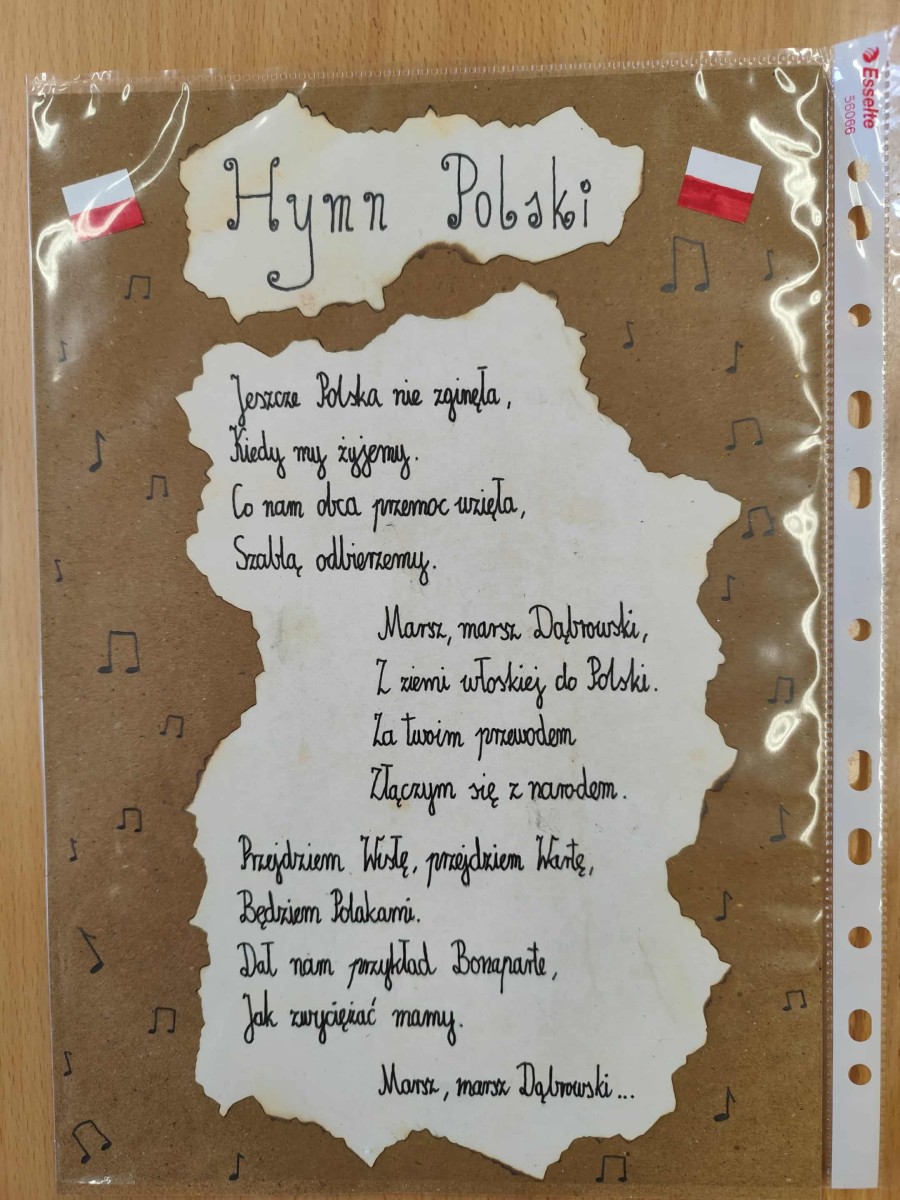 Hymn Polski
Jeszcze Polska nie zginęła,
Kiedy my żyjemy.
Co nam obca przemoc wzięła,
Szablą odbierzemy.
Marsz, marsz Dąbrowski,
Z ziemi włoskiej do Polski.
Za twoim przewodem
Złączym się z narodem.
Przejdziem Wisłę, przejdziem Wartę,
Będziem Polakami.
Dał nam przykład Bonaparte,
Jak zwyciężać mamy.
Marsz, marsz Dąbrowski...
Esselte
56066